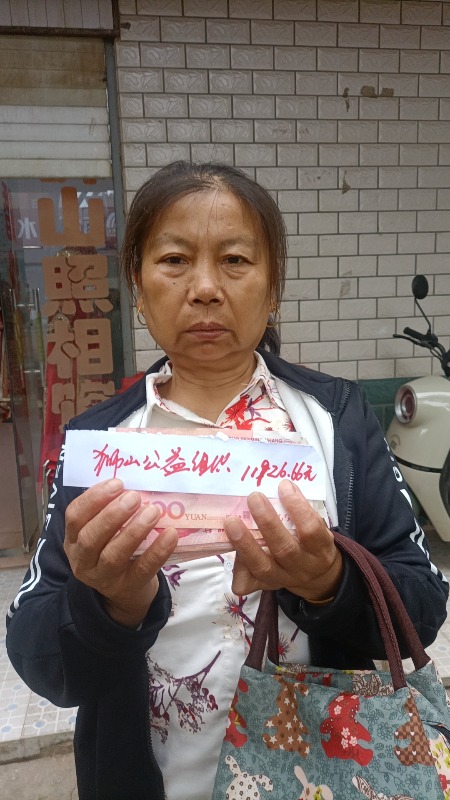 山照相馆
水
狮山公益组织. 11826.66元
00 YUAN